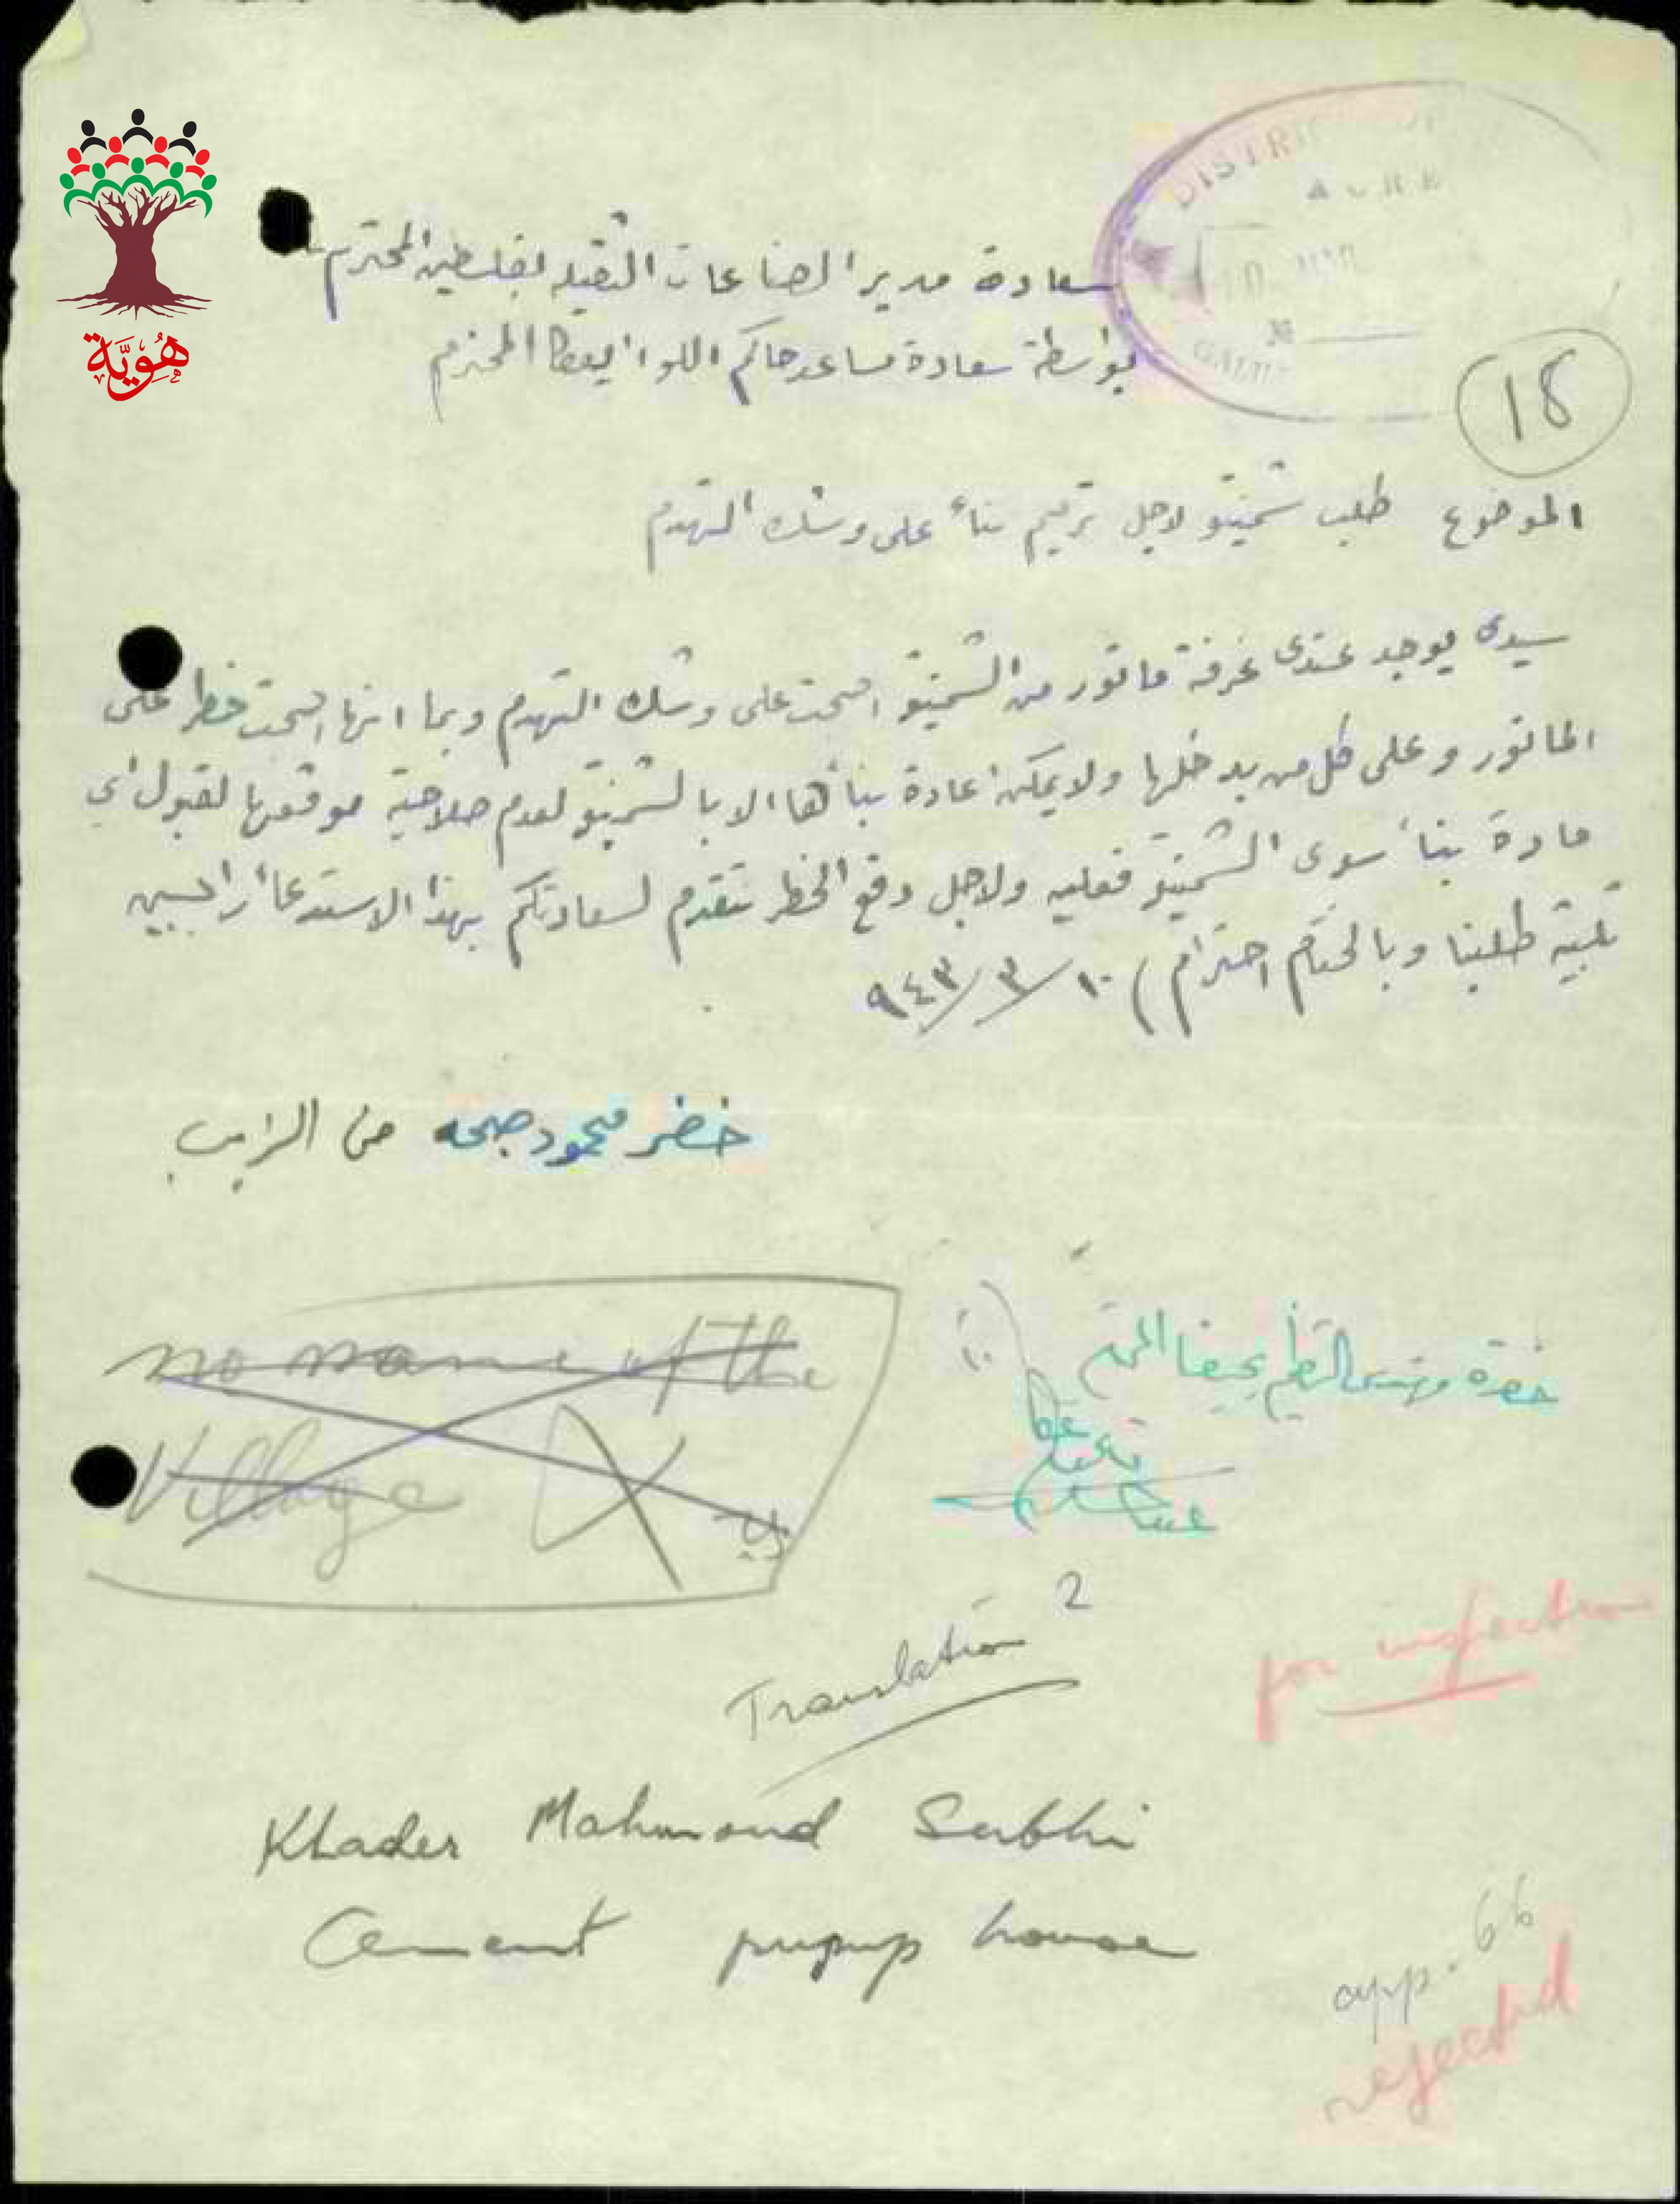 هُوِيَّة
DISTRI
ACRE
№
GALIL
سعادة مدير الصناعات الثقيله لفلسطين المحترم
بواسطة سعادة مساعد حاكم اللواء بعكا المحترم
18
الموضوع طلب شمينتو لاجل ترميم بناء على وشك التهدم
سيدي يوجد عندي غرفة ماتور من الشمينتو اصبحت على وشك التهدم وبما انها اصبحت خطر على
الماتور وعلى كل من يدخلها ولا يمكن اعادة بنائها الا بالشمينتو لعدم صلاحية موقعها لقبول اي
مادة بناء سوى الشمينتو فعليه ولاجل دفع الخطر نتقدم لسعادتكم بهذا الاستدعاء راجيين
تلبية طلبنا وبالختام احترام) ١٠/٣/٩٤٣
خضر محمود صبحه من الزيب
حضرة مهندس التنظيم بحيفا المحترم
no name of the
Village
Translation 2
for inspection
Khader Mahmoud Subhi
Cement pump house
app. 66
rejected